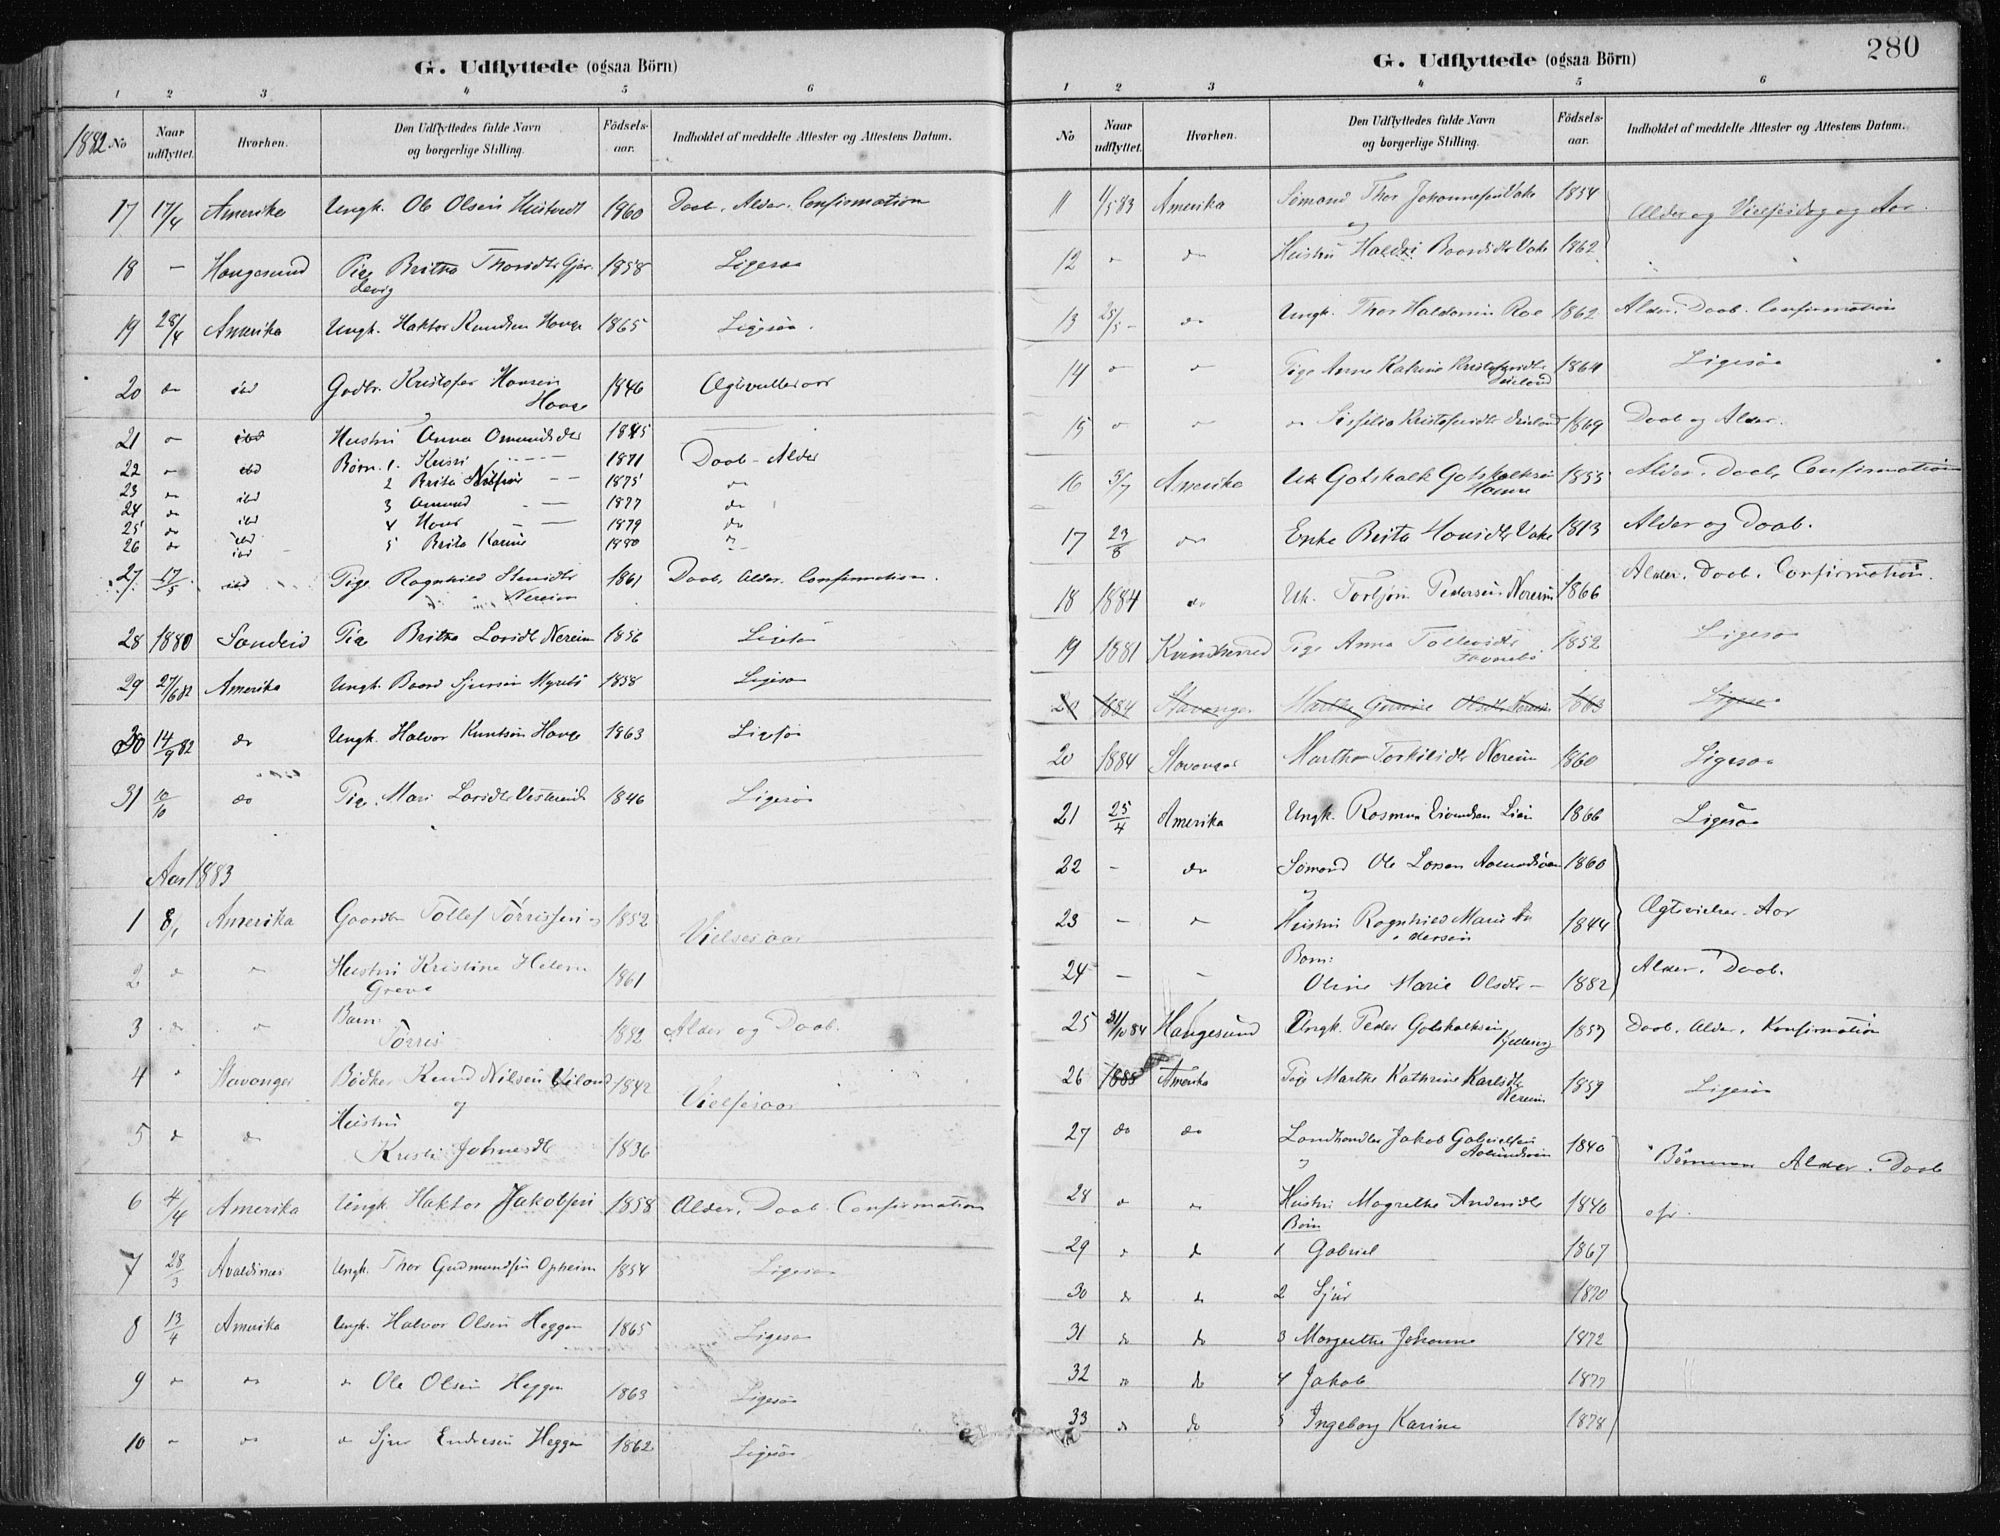 G. Udflyttede (ogsaa Börn)
1 2 3 4 5 6
1882 No Naar udflyttet. Hvorhen. Den Udflyttedes fulde Navn og borgerlige Stilling. Födsels-aar. Indholdet af meddelte Attester og Attestens Datum.
17 17/4 Amerika Ungk. Ole Olsen 1860 Daab. Alder. Confirmation
18 — Haugesund Pige Britha Thorsdtr Gjer-
devig 1858 Ligesaa
19 28/4 Amerika Ungk. Haktor Knudsen Hauge 1865 Ligesaa.
20 do ibd Gadbr. Kristofer Hansen
Hauge 1846 Ægtevielsesaar
21 " ibd Hustru Anna Omundsdtr 1845
22 " ibd Børn. 1. Kristi 1871 Daab - Alder
23 do ibd 2 Brita 1875 do
24 do ibd 3 Omund 1877 do
25 do ibd 4 Hans 1879 do
26 do ibd 5 Brita Karine 1880 "
27. 17/5 ibd Pige Ragnhild Stensdtr
Nereim 1861 Daab, Alder. Confirmation.
28 1880 Sandeid Pige Britha Larsdtr Nereim 1856 Ligesaa
29 27/6 82 Amerika Ungk. Baard Sjursen 1858 Ligesaa
30 14/9 82 do Ungk. Halvor Knutsen Hauge 1863 Ligesaa
31 10/10 do Pige. Mari Larsdtr 1846 Ligesaa
Aar 1883
1 8/1 Amerika Gaardbr. Tollef Tørrissen og 1852 Vielsesaar
2 " " Hustru Kristine Helene
Greve 1861
3 do " Barn:
Tørris 1882 Alder og Daab.
4 " Stavanger Bødker Knud Nilsen 1842 Vielsesaar
og
5 " " Hustru
Kristi Johnsdtr 1836
6 4/4 Amerika Ungk. Haktor Jakobsen 1858 Alder, Daab. Confirmation
7 28/3 Avaldsnæs Ungk. Thor Gudmundsen Opheim 1854 Ligesaa
8 13/4 Amerika Ungk. Halvor Olsen Heggen 1865 Ligesaa
9 " " " Ole Olsen Heggen 1863 Ligesaa
10 " " " Sjur Endresen Heggen 1862 Ligesaa
280
G. Udflyttede (ogsaa Börn)
1 2 3 4 5 6
No Naar udflyttet. Hvorhen. Den Udflyttedes fulde Navn og borgerlige Stilling. Födsels-aar. Indholdet af meddelte Attester og Attestens Datum.
11 1/5 83 Amerika Sømand Thor Johannesen Vake 1854 Alder og Vielsesdag og Aar.
og
12 " do Hustru Baardsdtr Vake 1862
13 25/5 — do Ungk. Thor Haldorsen Roe 1862 Alder. Daab. Confirmation
14 " " Pige Anne Katrine Kristofersdtr 1864 Ligesaa
15 " " " Kristofersdtr 1869 Daab og Alder.
16 3/7 Amerika Uk Gotskalk Gotskalksen 1855 Alder. Daab, Confirmation
17 29/8 do Enke Brita Hansdtr Vake 1813 Alder og Daab.
18 1884 do Uk. Torbjørn Pedersen Nereim 1866 Alder. Daab. Confirmation.
19 1881 Kvindherred Pige Anna Tollevsdtr 1852 Ligesaa
20 1884 Stavanger Marthe Olsdtr Nereim 1863 Ligesaa
20 1884 Stavanger Martha Torkilsdtr Nereim 1860 Ligesaa
21 25/4 Amerika Ungk. Rasmus Eivindsen Lien 1866 Ligesaa
22 — do Sømand Ole Larsen 1860
og
23 — " Hustru Ragnhild Marie An
dersen 1844 Ægtevielses-Aar
24 — " Barn:
Oline Marie Olsdtr — 1882 Alder. Daab.
25 31/10 84 Haugesund Ungk. Peder Gotskalksen 1857 Daab. Alder. Konfirmation
26 1885 Amerika Pige Marthe Kathrine Karlsdtr
Nereim 1859 Ligesaa
27 do do Landhandler Jakob Gabrielsen 1840 Børnenes Alder. Daab
og
28 " " Hustru Magrethe Andersdtr 1840
Børn
29 " d 1 Gabriel 1867
30 do do 2 Sjur 1870
31 do do 3 Margrethe Johanne 1872
32 do do 4 Jakob 1877
33 do do 5 Ingeborg Karine 1878